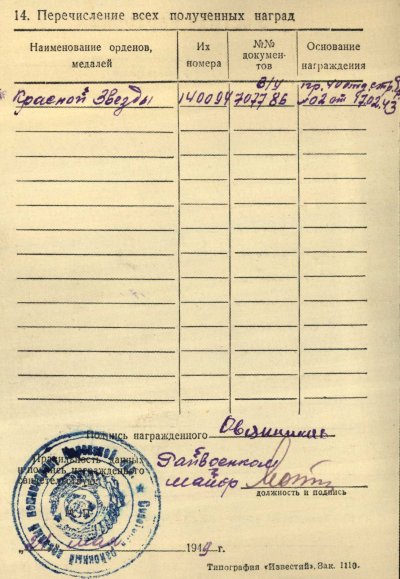 14. Перечисление всех полученных наград
Наименование орденов, медалей
Их номера
№№ документов
Основание награждения
Красной Звезды
140094
б/у 707786
пр. 40 отд. стр. бр.
№02 от 17.02.43
Подпись награжденного
Правильность данных
и подпись награжденного
свидетельствую:
Райвоенком
майор
должность и подпись
мая 1949 г.
Типография «Известий». Зак. 1110.